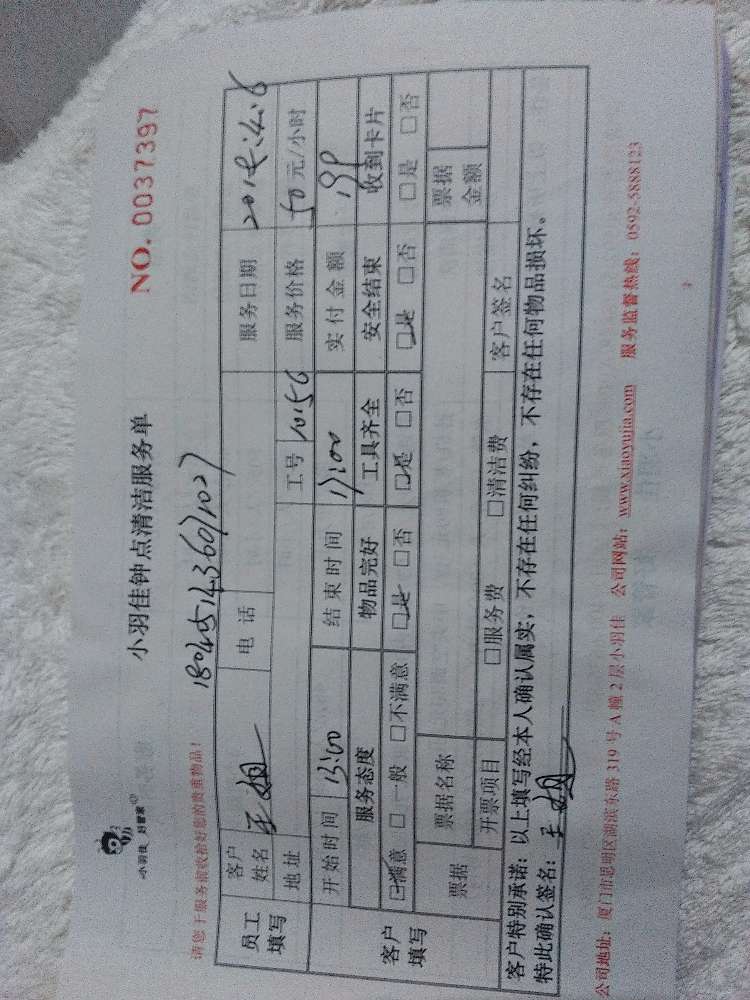 小羽佳 好管家
小羽佳钟点清洁服务单
NO. 0037397
请您于服务前收拾好您的贵重物品！
18045143607102)
员工填写 客户姓名 王姐 电话 服务日期
地址 工号 10156 服务价格 50元/小时
客户填写 开始时间 13:00 结束时间 17:00 实付金额
服务态度 物品完好 工具齐全 安全结束 收到卡片
☑满意 □一般 □不满意 ☑是 □否 ☑是 □否 ☑是 □否 □是 □否
票据 票据名称 票据金额
开票项目 □服务费 □清洁费 客户签名
客户特别承诺：以上填写经本人确认属实，不存在任何纠纷，不存在任何物品损坏。
特此确认签名：王姐
公司地址：厦门市思明区湖滨东路319号A幢2层小羽佳 公司网站：www.xiaoyujia.com 服务监督热线：0592-5888123